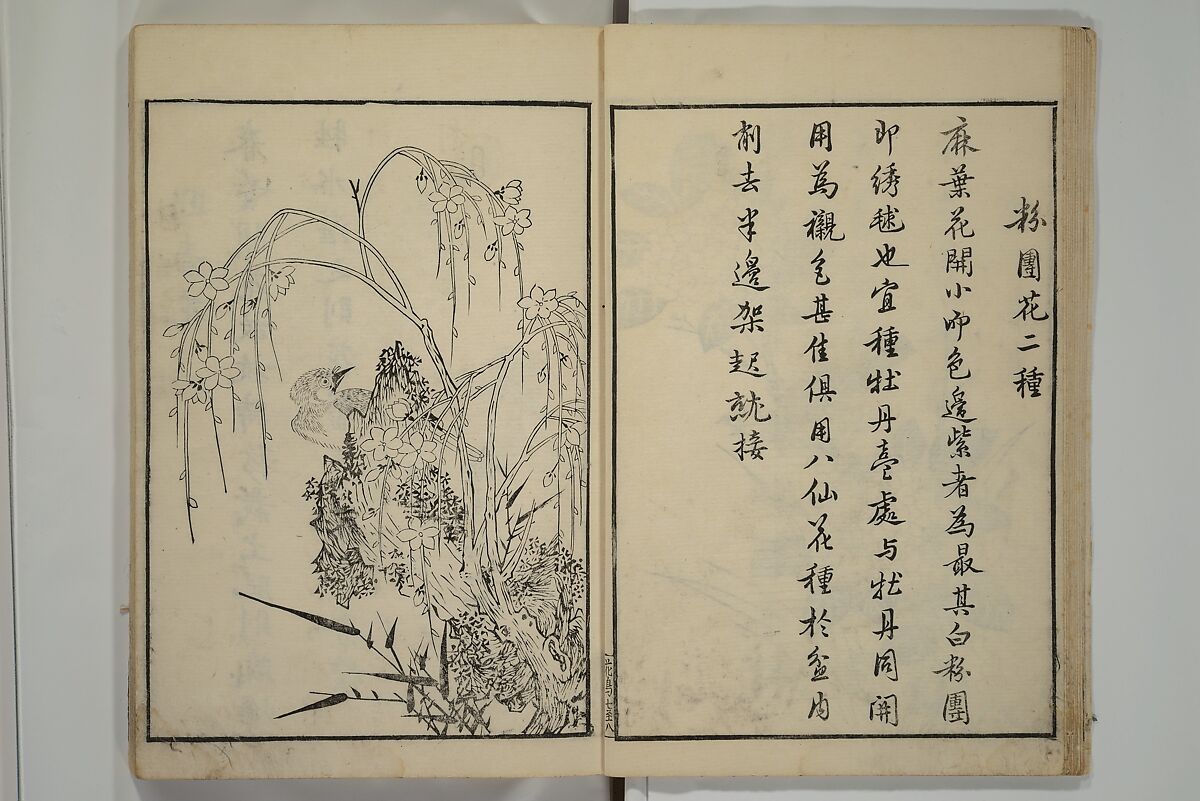 粉團花二種
麻葉花開小而色邉紫者為最其白粉團
即綉毬也宜種牡丹臺處与牡丹同開
用為襯色甚佳俱用八仙花種於盆内
削去半邉架起就接
花鳥 七至八